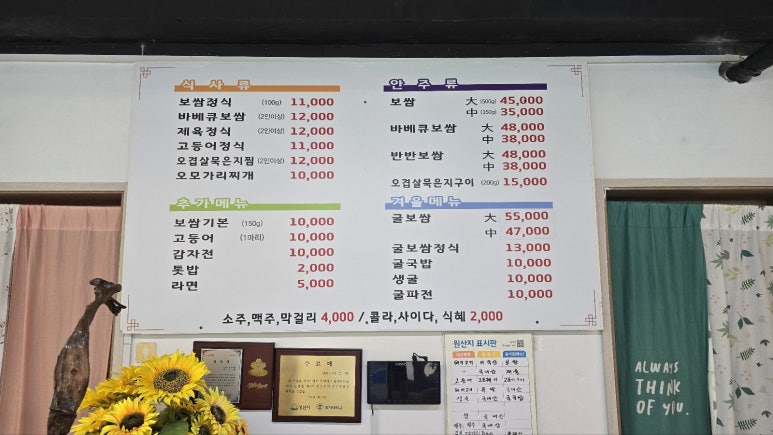 식 사 류
보쌈정식 (100g) 11,000
바베큐보쌈 (2인이상) 12,000
제육정식 (2인이상) 12,000
고등어정식 11,000
오겹살묵은지찜 (2인이상) 12,000
오모가리찌개 10,000
추가메뉴
보쌈기본 (150g) 10,000
고등어 (1마리) 10,000
감자전 10,000
톳밥 2,000
라면 5,000
안 주 류
보쌈 大 (500g) 45,000
中 (350g) 35,000
바베큐보쌈 大 48,000
中 38,000
반반보쌈 大 48,000
中 38,000
오겹살묵은지구이 (200g) 15,000
겨울메뉴
굴보쌈 大 55,000
中 47,000
굴보쌈정식 13,000
굴국밥 10,000
생굴 10,000
굴파전 10,000
소주,맥주,막걸리 4,000 / 콜라,사이다, 식혜 2,000
원산지 표시판
ALWAYS
THINK
OF YOU.